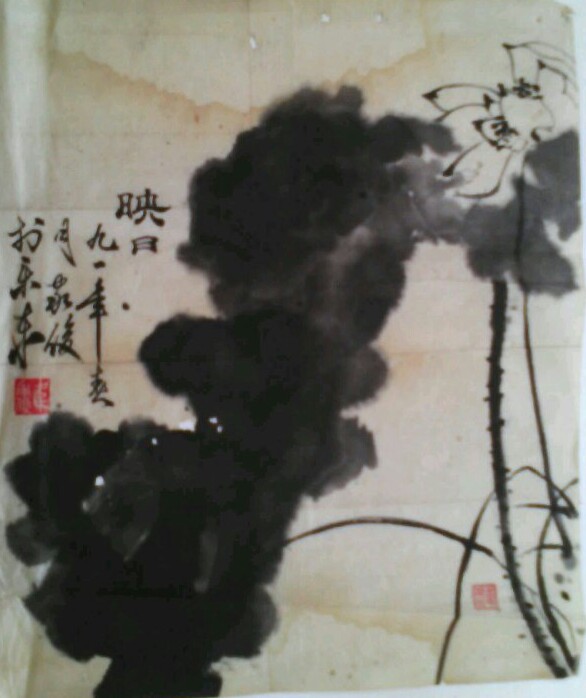 映日
九一年春
月家俊
於京东